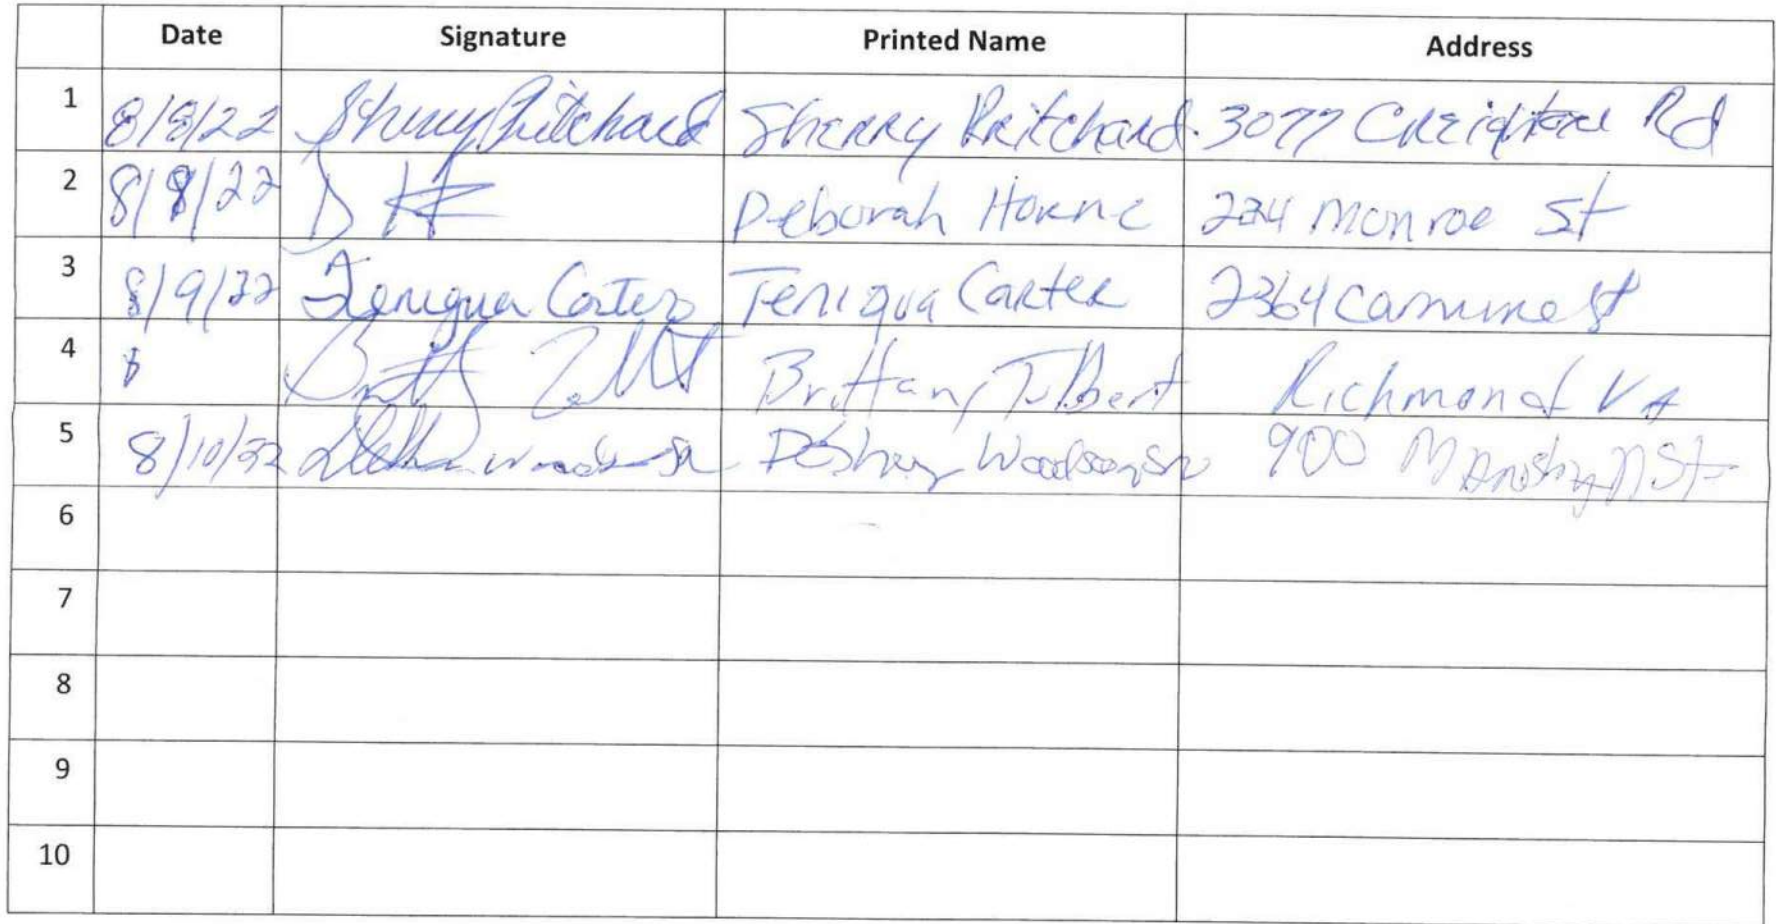 Date Signature Printed Name Address
1 8/8/22 Sherry Pritchard Sherry Pritchard 3077 Creighton Rd
2 8/8/22 D H Deborah Horne 224 Monroe St
3 8/9/22 Teniqua Carter Teniqua Carter 2364 St
4 8 Brittany Tolbert Richmond VA
5 8/10/22 Woodson Sr 900 St
6
7
8
9
10